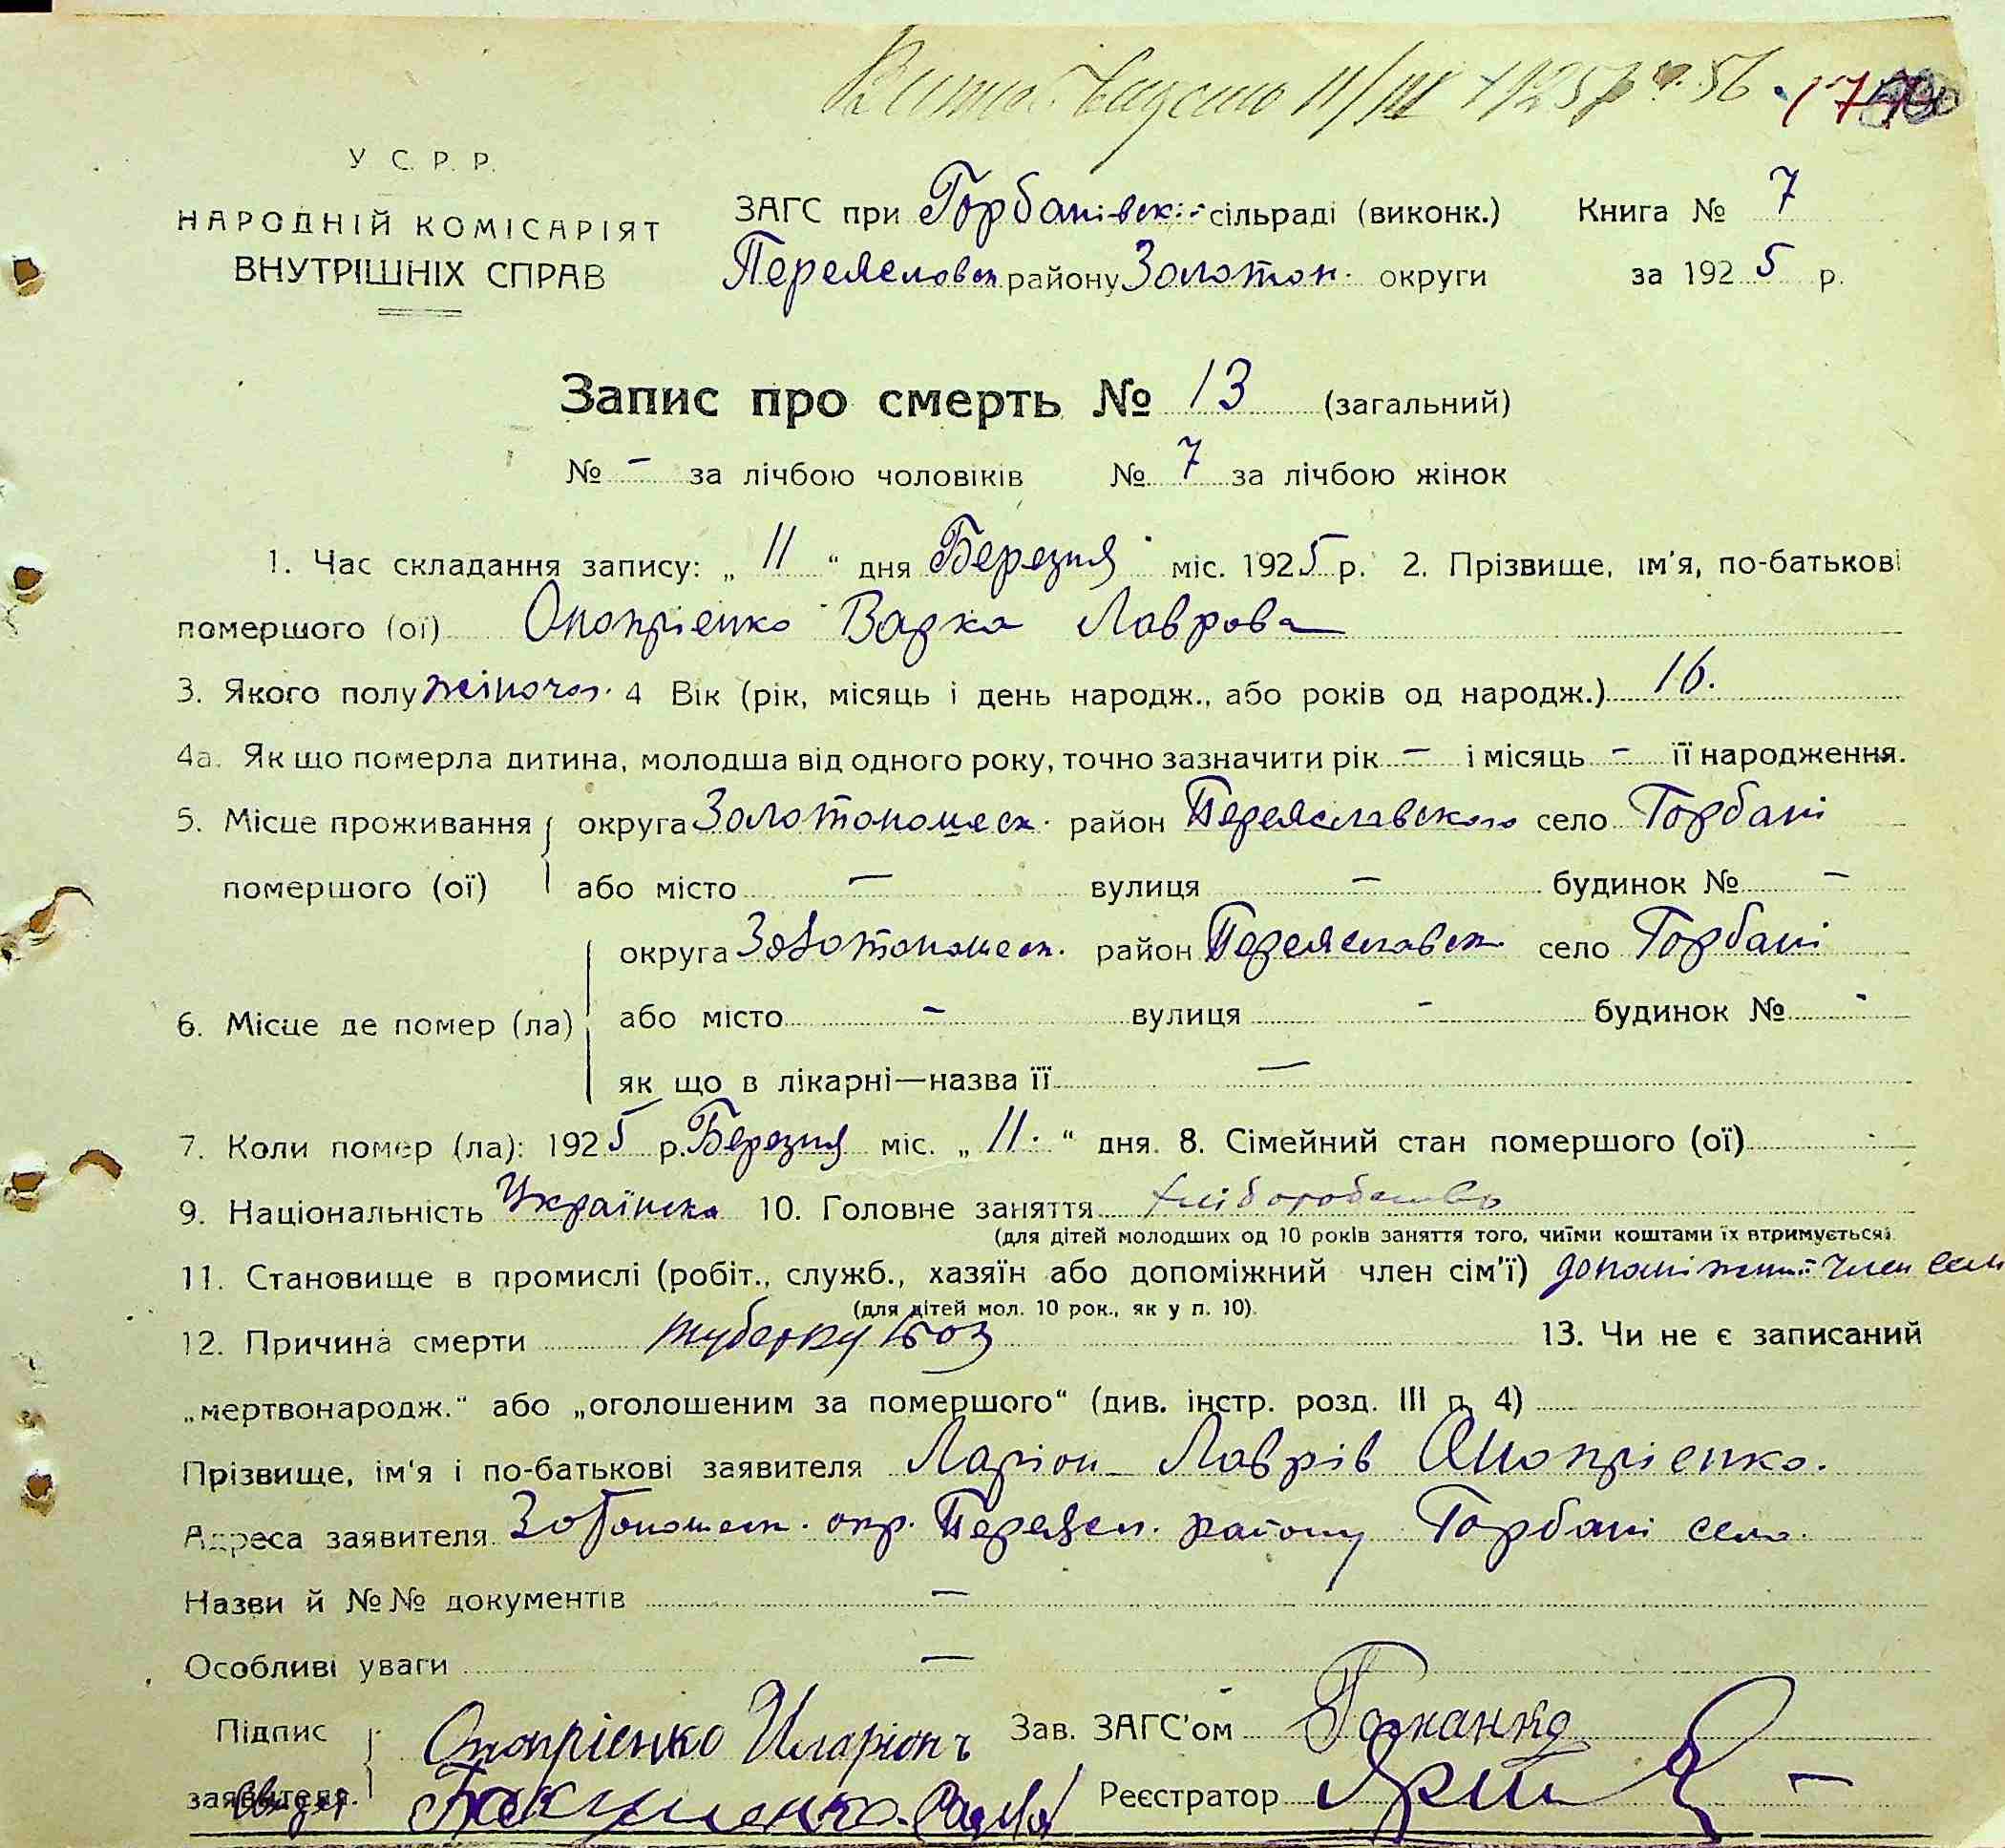 видано 11/III 1925 р. № 56
У С. Р. Р.
НАРОДНІЙ КОМІСАРІЯТ
ВНУТРІШНІХ СПРАВ
ЗАГС при Горбанівськ. сільраді (виконк.) Книга № 7
Переяславськ району Золотон. округи за 1925 р.
Запис про смерть № 13 (загальний)
№ – за лічбою чоловіків № 7 за лічбою жінок
1. Час складання запису: „ 11 “ дня Березня міс. 1925 р. 2. Прізвище, ім'я, по-батькові
помершого (ої) Онопрієнко Варка Лаврова
3. Якого полу жіночог. 4 Вік (рік, місяць і день народж., або років од народж.) 16.
4а. Як що померла дитина, молодша від одного року, точно зазначити рік – і місяць – її народження.
5. Місце проживання округа Золотоношськ. район Переяславського село Горбані
помершого (ої) або місто – вулиця – будинок № –
округа Золотоношськ. район Переяславськ село Горбані
6. Місце де помер (ла) або місто – вулиця – будинок № -
як що в лікарні—назва її –
7. Коли помер (ла): 1925 р. Березня міс. „ 11. “ дня. 8. Сімейний стан помершого (ої) -
9. Національність Українска 10. Головне заняття хліборобство
(для дітей молодших од 10 років заняття того, чиїми коштами їх втримується)
11. Становище в промислі (робіт., служб., хазяїн або допоміжний член сім'ї) допоміжний член сем
(для дітей мол. 10 рок., як у п. 10).
12. Причина смерти туберкульоз 13. Чи не є записаний
„мертвонародж.“ або „оголошеним за помершого“ (див. інстр. розд. III п. 4)
Прізвище, ім'я і по-батькові заявителя Ларіон Лаврів Онопрієнко.
Адреса заявителя Золотоношськ. окр. Переясл. району Горбані село.
Назви й №№ документів –
Особливі уваги –
Підпис Онопріенко Иларіонъ Зав. ЗАГС'ом
заявителя. Реєстратор